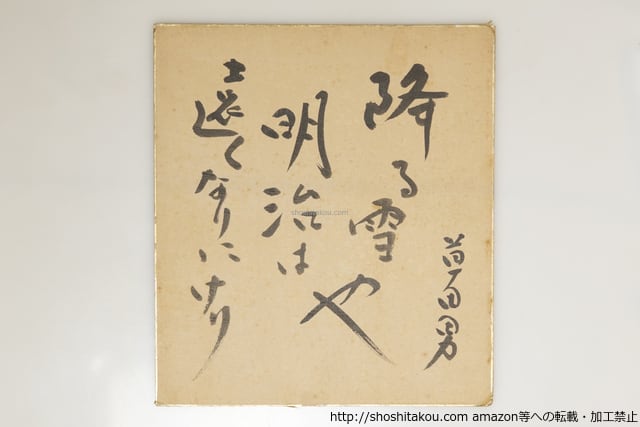 降る雪や
明治は
遠くなりにけり
草田男
shoshitakou.com
http://shoshitakou.com amazon等への転載・加工禁止